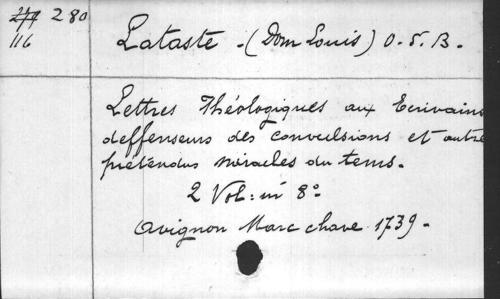 280
116
Lataste - (Dom Louis) O. S. B. -
Lettres Théologiques aux Ecrivains
deffenseurs des convulsions et autre
prétendus miracles du tems.
2 Vol: in 8°
Avignon Marc chave 1739 -